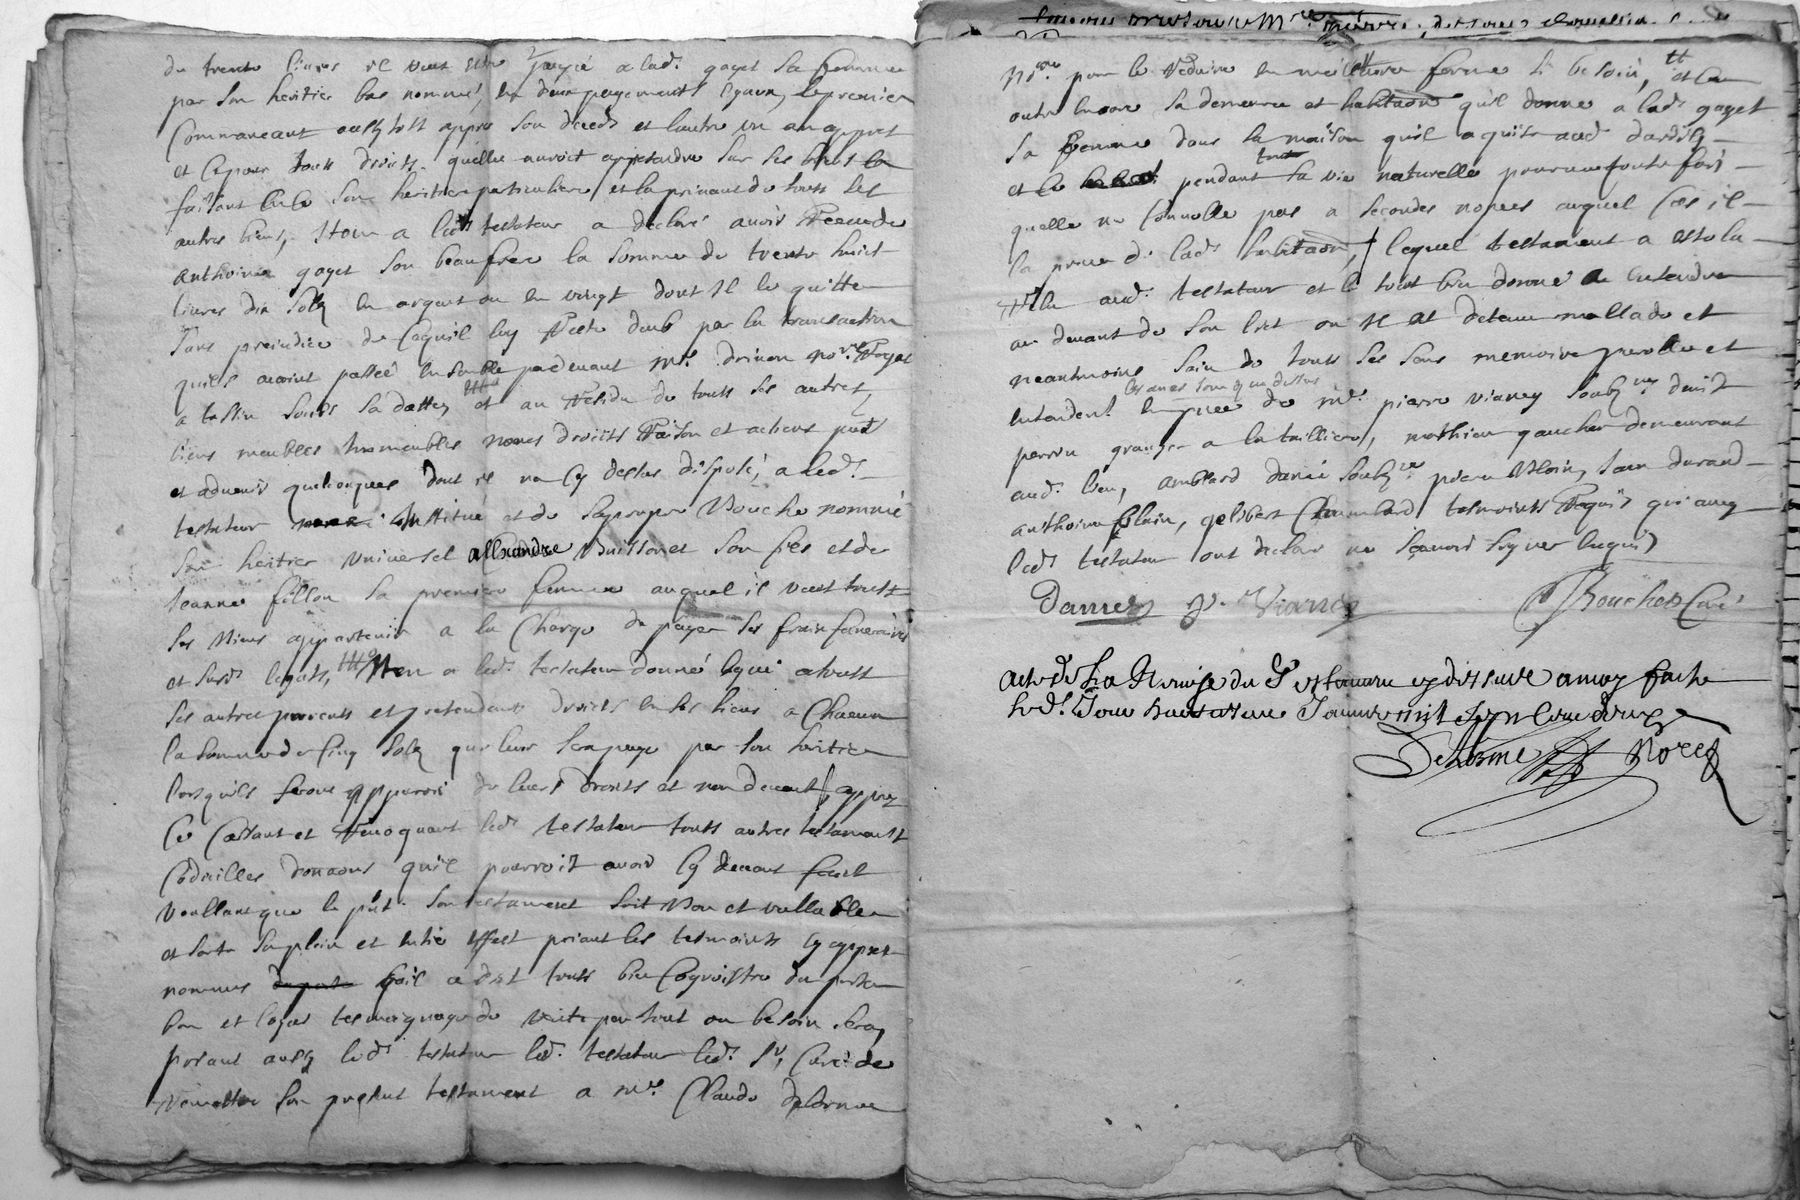 de trente livres il veut estre payé a lad. gayet sa femme
par son heritier bas nommé, en deux payements egaux, le premier
commancant aussy tost appres son deceds et lautre un an appres
et ce pour touts droits quelle auroit a prtandre sur ses biens la
faisant en ce son heritiere particuliere et la privant de touts ses
autres biens, Item a led. testateur a declaré avoir receu de
anthoine gayet son beau frere la somme de trente huict
livres dix solz en argent ou en dont il le quitte
sans preiudice de ce quil luy reste deub par la transaction
quils avoint passée ensemble pardevant Mr. drivon nore. Royal
a tassin soubs sa datte, et au residu de touts ses autres
biens meubles immeubles noms droicts raison et actions pnt
et advenir quelconques dont il na cy dessus disposé, a led.
testateur institué et de sa propre bouche nommé
son heritier universel allexandre buissonet son fils et de
Jeanne fillon sa premiere femme auquel il veut touts
ses biens appartenir a la charge de payer ses frais funeraires
et susd. legats, Item a led. testateur donné legué a touts
ses autres parents et pretendants droicts en ses biens a chacun
la somme de cinq solz que leur sera paye par son heritier
lorsquils feront apparoir de leurs droits et non devant, appres
ce cassant et revoquant led. testateur touts autres testaments
codicilles donnaons quil pourroit avoir cy devant faict
voullant que le pnt. son testament soit bon et vallable
et sorte son plein et entier effect priant les tesmoints cy appres
nommes quil a dit touts bien cognoistre den porter
bon et loyal tesmoignage de verité par tout ou besoin sera,
priant aussy led. testateur led. testateur led. sr. curé de
remettre son present testament a Mre. Claude delorme
nore. pour le reduire en meilleure forme si besoin, et en
outre encore sa demeure et habitaon quil donne a lad. gayet
sa femme dans la maison quil a quise aud. dardilly
et ce pendant sa vie naturelle pourveu toute fois
quelle ne convolle pas a secondes nopces auquel cas il
la prive de lad. habitaon, lequel testament a esté lu
relu aud. testateur et le tout bien donné a entendre
au devant de son lict ou il est detenu mallade et
neantmoins sain de touts ses sens memoire parolle et
entendent. en pnce de Mr. pierre vianey soubzne. benoist
perrin granger a la tailliere, mathieu gaucher demeurant
aud. lieu, amblard danié soubzne. pierre bloin, Jean durand
anthoine blain, gelibert chambard tesmoints requis qui avec
led. testateur ont declaré ne sçavoir signer enquis
Danier P. Vianey Bouchet Curé
acte de la Remise du Testament cy dessus a moy faite
led. Jour huictiesme Janvier mil
Delorme Nore